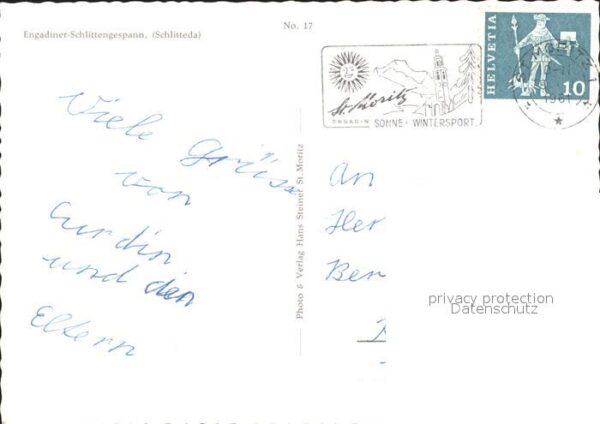 Engadiner-Schlittengespann, (Schlitteda)
No. 17
St. Moritz
ENGADIN SONNE · WINTERSPORT
HELVETIA
10
1961
Viele Grüsse
von
Curdin
und den
Eltern
Photo & Verlag Hans Steiner St. Moritz
An
Her
Ber
privacy protection
Datenschutz